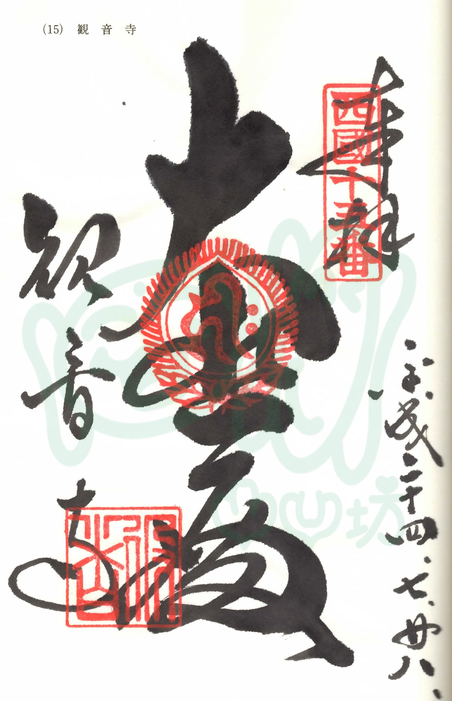 (15) 観音寺
奉拝
西國十五番
平成二十四、七、廿八、
大悲殿
観音寺